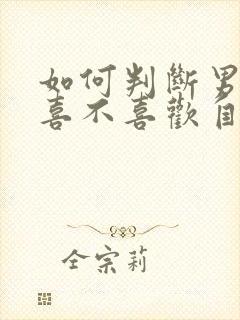 如何判斷男
喜不喜歡自
全宗莉